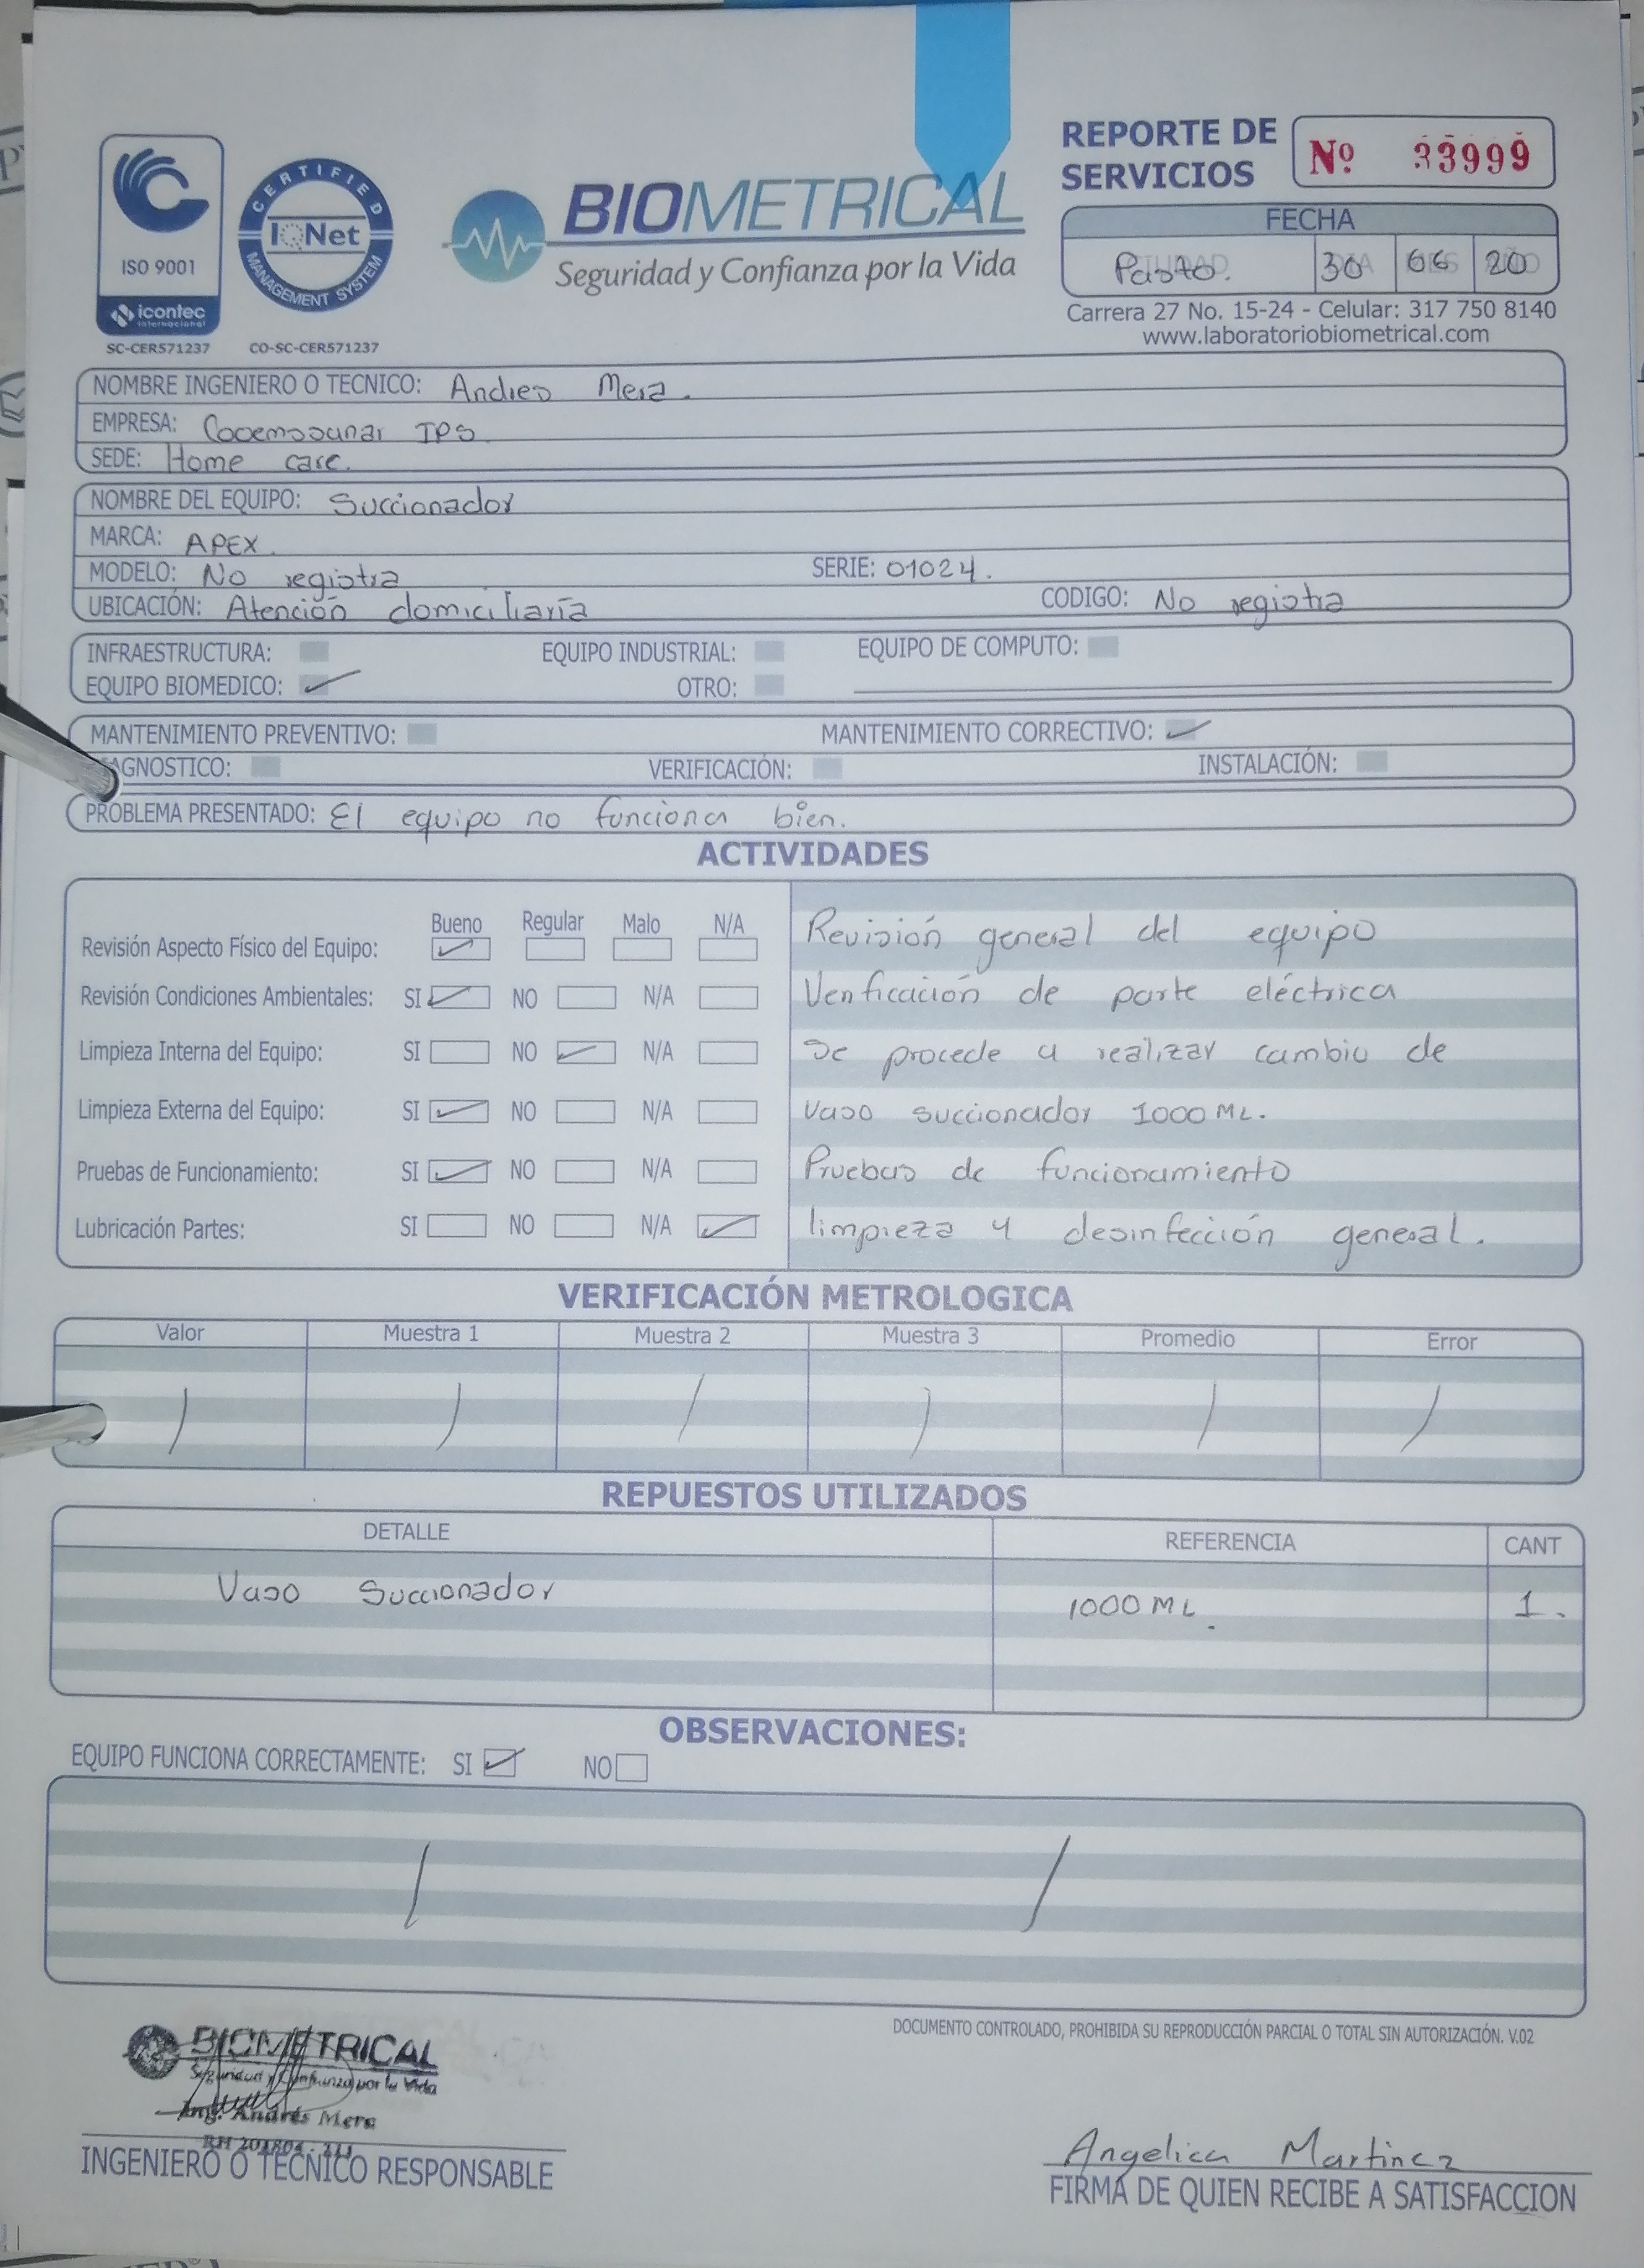 REPORTE DE SERVICIOS
Nº 33999
FECHA
Pasto. 30 06 20
Carrera 27 No. 15-24 - Celular: 317 750 8140
www.laboratoriobiometrical.com
ISO 9001
icontec
internacional
SC-CER571237
CERTIFIED
IQNet
MANAGEMENT SYSTEM
CO-SC-CER571237
BIOMETRICAL
Seguridad y Confianza por la Vida
NOMBRE INGENIERO O TECNICO: Andres Mera.
EMPRESA: IPS
SEDE: Home care.
NOMBRE DEL EQUIPO: Succionador
MARCA: APEX.
MODELO: No registra SERIE: 01024.
UBICACIÓN: Atención domiciliaria CODIGO: No registra
INFRAESTRUCTURA: EQUIPO INDUSTRIAL: EQUIPO DE COMPUTO:
EQUIPO BIOMEDICO: OTRO:
MANTENIMIENTO PREVENTIVO: MANTENIMIENTO CORRECTIVO:
AGNOSTICO: VERIFICACIÓN: INSTALACIÓN:
PROBLEMA PRESENTADO: El equipo no funciona bien.
ACTIVIDADES
Bueno Regular Malo N/A
Revisión Aspecto Físico del Equipo:
Revisión Condiciones Ambientales: SI NO N/A
Limpieza Interna del Equipo: SI NO N/A
Limpieza Externa del Equipo: SI NO N/A
Pruebas de Funcionamiento: SI NO N/A
Lubricación Partes: SI NO N/A
Revisión general del equipo
Verificación de parte eléctrica
Se procede a realizar cambio de
vaso succionador 1000 ML.
Pruebas de funcionamiento
limpieza y desinfección general.
VERIFICACIÓN METROLOGICA
Valor Muestra 1 Muestra 2 Muestra 3 Promedio Error
REPUESTOS UTILIZADOS
DETALLE REFERENCIA CANT
Vaso Succionador 1000 ML. 1.
OBSERVACIONES:
EQUIPO FUNCIONA CORRECTAMENTE: SI NO
DOCUMENTO CONTROLADO, PROHIBIDA SU REPRODUCCIÓN PARCIAL O TOTAL SIN AUTORIZACIÓN. V.02
BIOMETRICAL
Seguridad y Confianza por la Vida
Ing. Andrés Mera
INGENIERO O TECNICO RESPONSABLE
Angelica Martinez
FIRMA DE QUIEN RECIBE A SATISFACCION